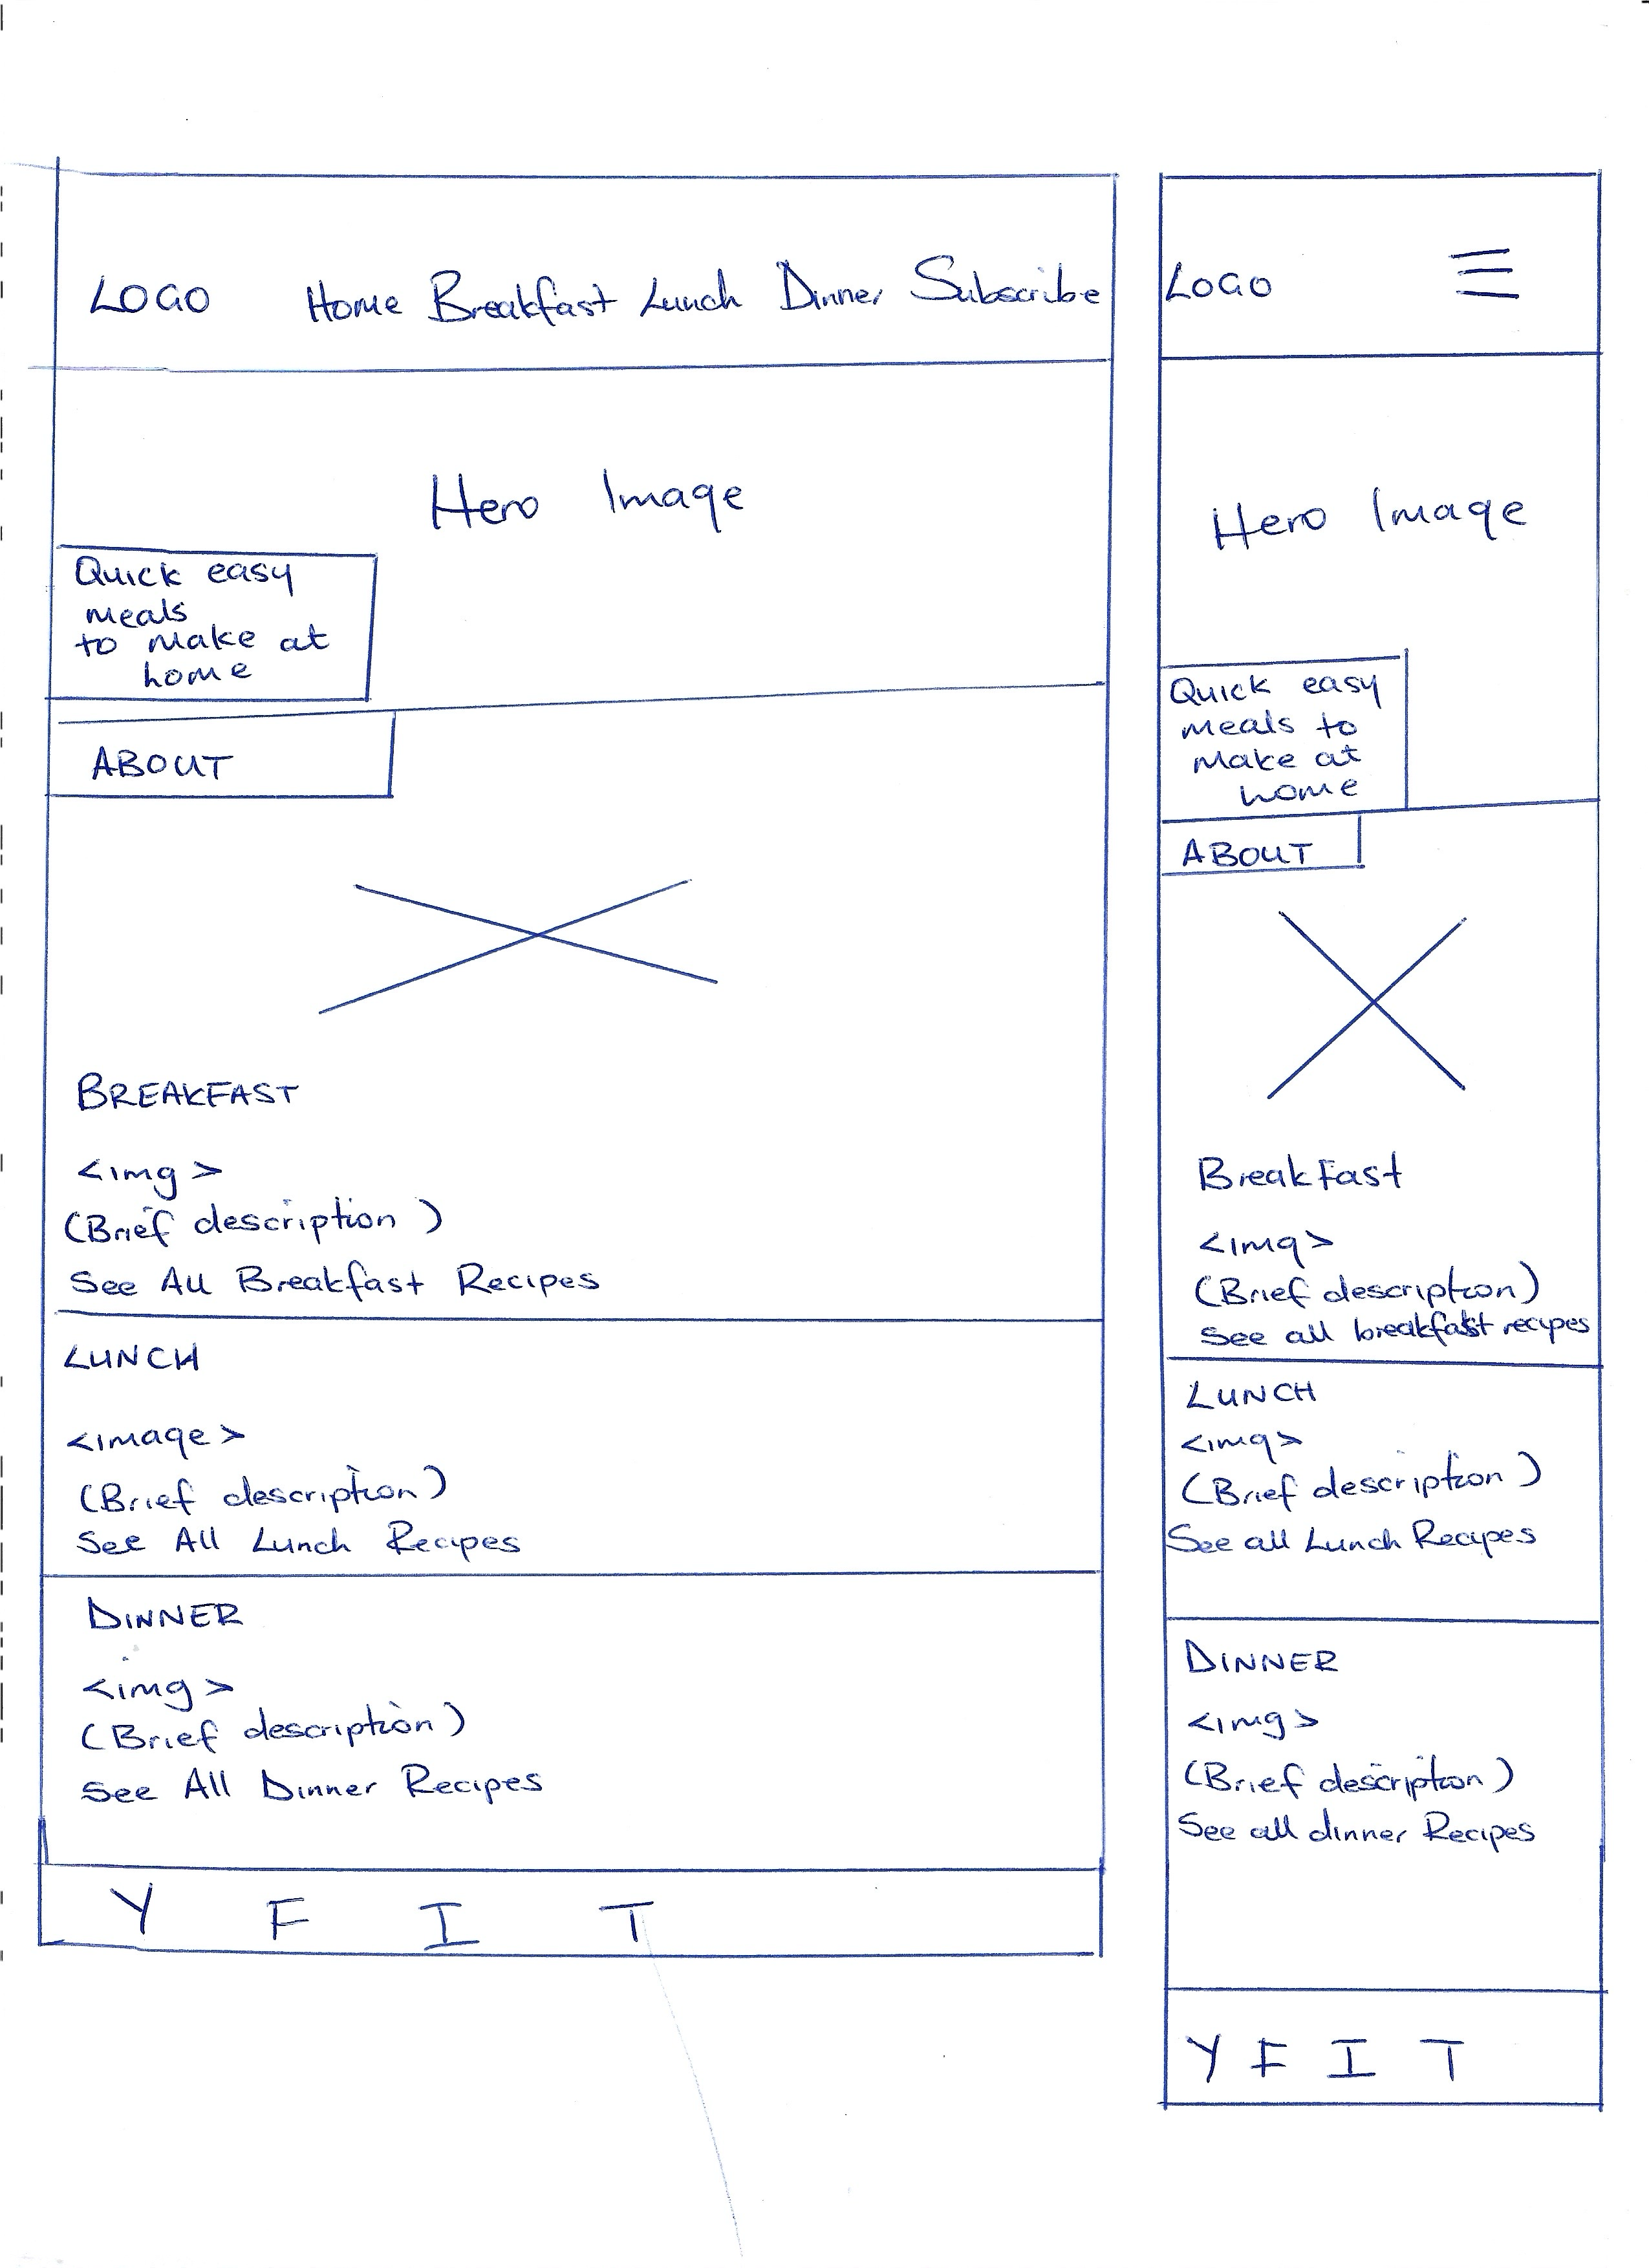 LOGO Home Breakfast Lunch Dinner Subscribe
Hero Image
Quick easy
meals
to make at
home
ABOUT
BREAKFAST
<img>
(Brief description)
See All Breakfast Recipes
LUNCH
<image>
(Brief description)
See All Lunch Recipes
DINNER
<img>
(Brief description)
See All Dinner Recipes
Y F I T
LOGO
Hero Image
Quick easy
meals to
make at
home
ABOUT
Breakfast
<img>
(Brief description)
See all breakfast recipes
LUNCH
<img>
(Brief description)
See all Lunch Recipes
DINNER
<img>
(Brief description)
See all dinner Recipes
Y F I T